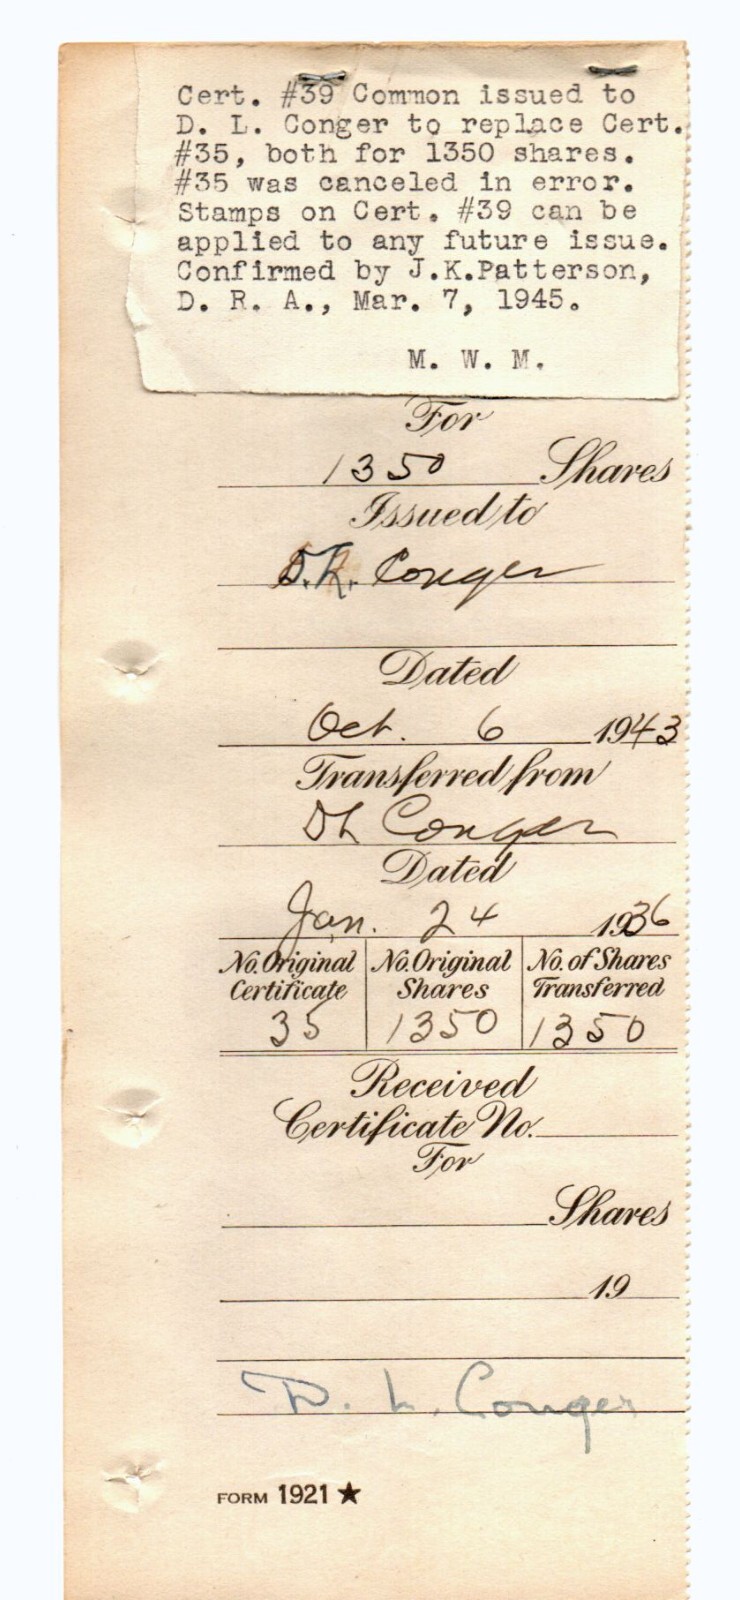 Cert. #39 Common issued to
D. L. Conger to replace Cert.
#35, both for 1350 shares.
#35 was canceled in error.
Stamps on Cert. #39 can be
applied to any future issue.
Confirmed by J.K.Patterson,
D. R. A., Mar. 7, 1945.
M. W. M.
For
1350 Shares
Issued to
D.L. Conger
Dated
Oct. 6 1943
Transferred from
DL Conger
Dated
Jan. 24 1936
No. Original Certificate No. Original Shares No. of Shares Transferred
35 1350 1350
Received
Certificate No.
For
Shares
19
D. L. Conger
FORM 1921 ★